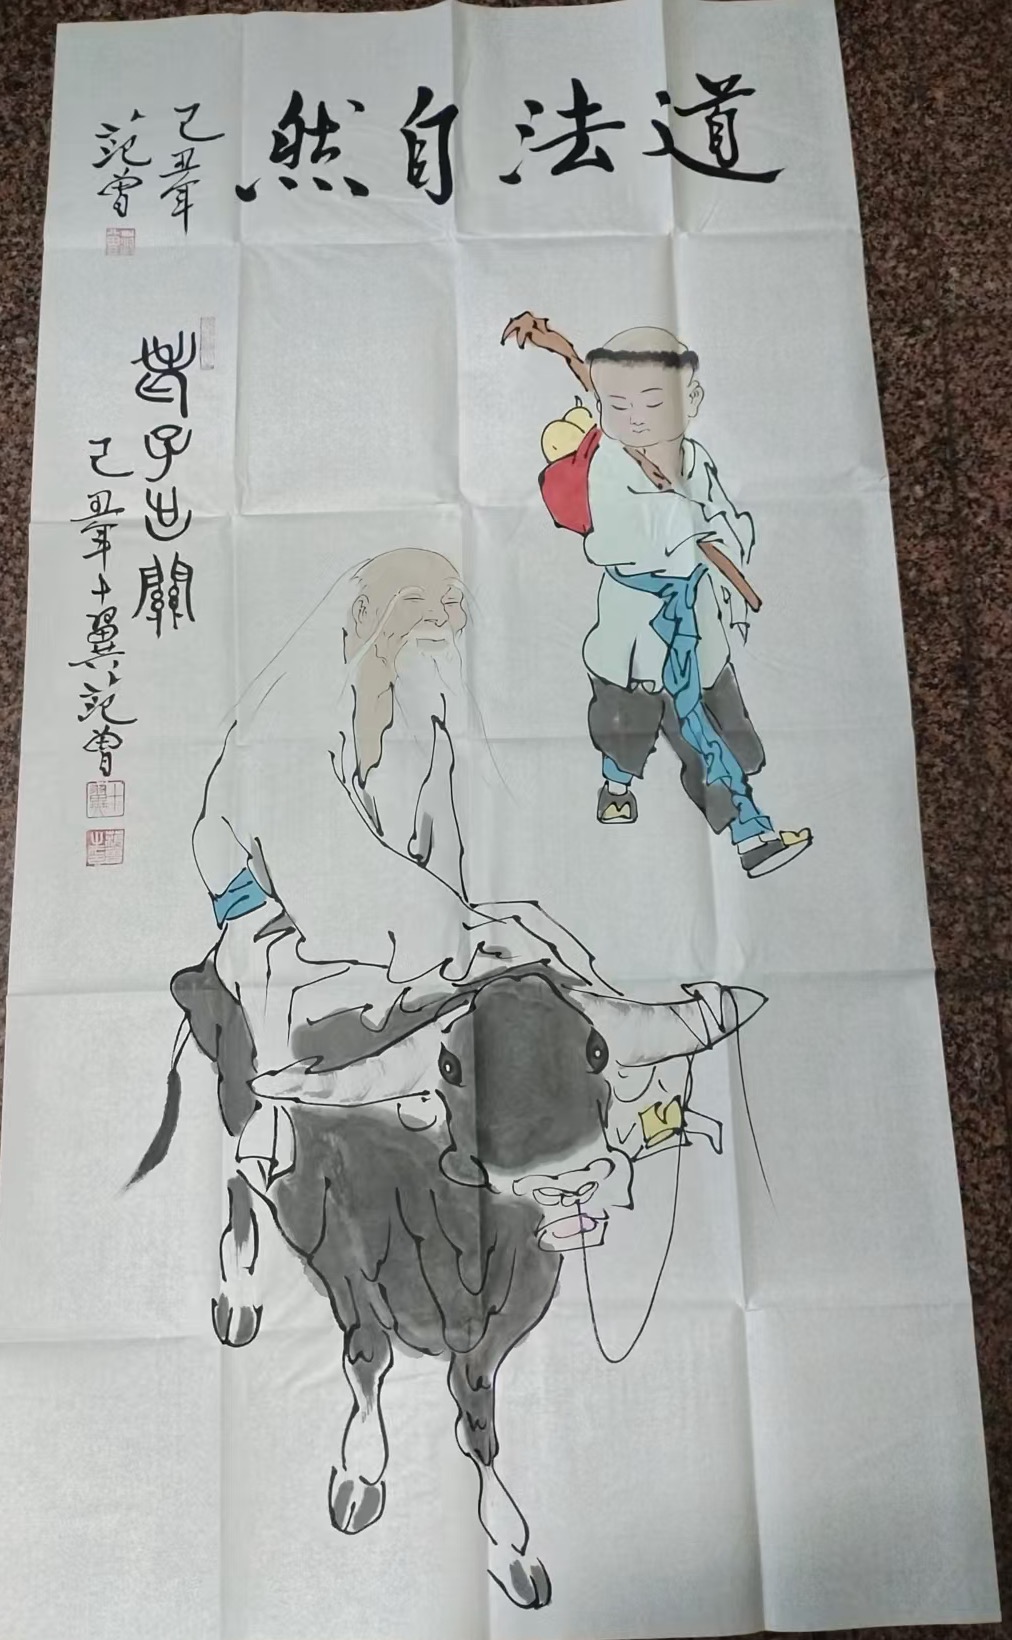 道法自然
己丑年
范曾
老子出關
己丑年十翼范曾
十翼